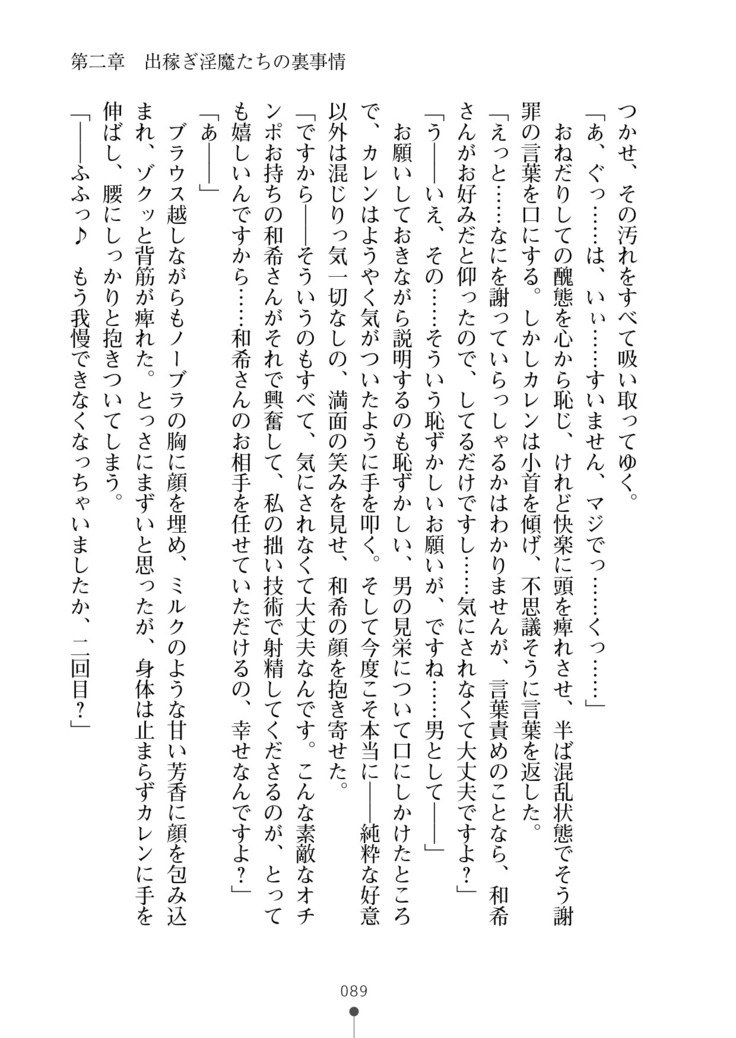 第二章　出稼ぎ淫魔たちの裏事情
つかせ、その汚れをすべて吸い取ってゆく。
「あ、ぐっ……は、いぃ……すいません、マジでっ……くっ……」
　おねだりしての醜態を心から恥じ、けれど快楽に頭を痺れさせ、半ば混乱状態でそう謝
罪の言葉を口にする。しかしカレンは小首を傾げ、不思議そうに言葉を返した。
「えっと……なにを謝っていらっしゃるかはわかりませんが、言葉責めのことなら、和希
さんがお好みだと仰ったので、してるだけですし……気にされなくて大丈夫ですよ？」
「う――いえ、その……そういう恥ずかしいお願いが、ですね……男として――」
　お願いしておきながら説明するのも恥ずかしい、男の見栄について口にしかけたところ
で、カレンはようやく気がついたように手を叩く。そして今度こそ本当に――純粋な好意
以外は混じりっ気一切なしの、満面の笑みを見せ、和希の顔を抱き寄せた。
「ですから――そういうのもすべて、気にされなくて大丈夫なんです。こんな素敵なオチ
ンポお持ちの和希さんがそれで興奮して、私の拙い技術で射精してくださるのが、とって
も嬉しいんですから……和希さんのお相手を任せていただけるの、幸せなんですよ？」
「あ――」
　ブラウス越しながらもノーブラの胸に顔を埋め、ミルクのような甘い芳香に顔を包み込
まれ、ゾクッと背筋が痺れた。とっさにまずいと思ったが、身体は止まらずカレンに手を
伸ばし、腰にしっかりと抱きついてしまう。
「――ふふっ♪　もう我慢できなくなっちゃいましたか、二回目？」
089